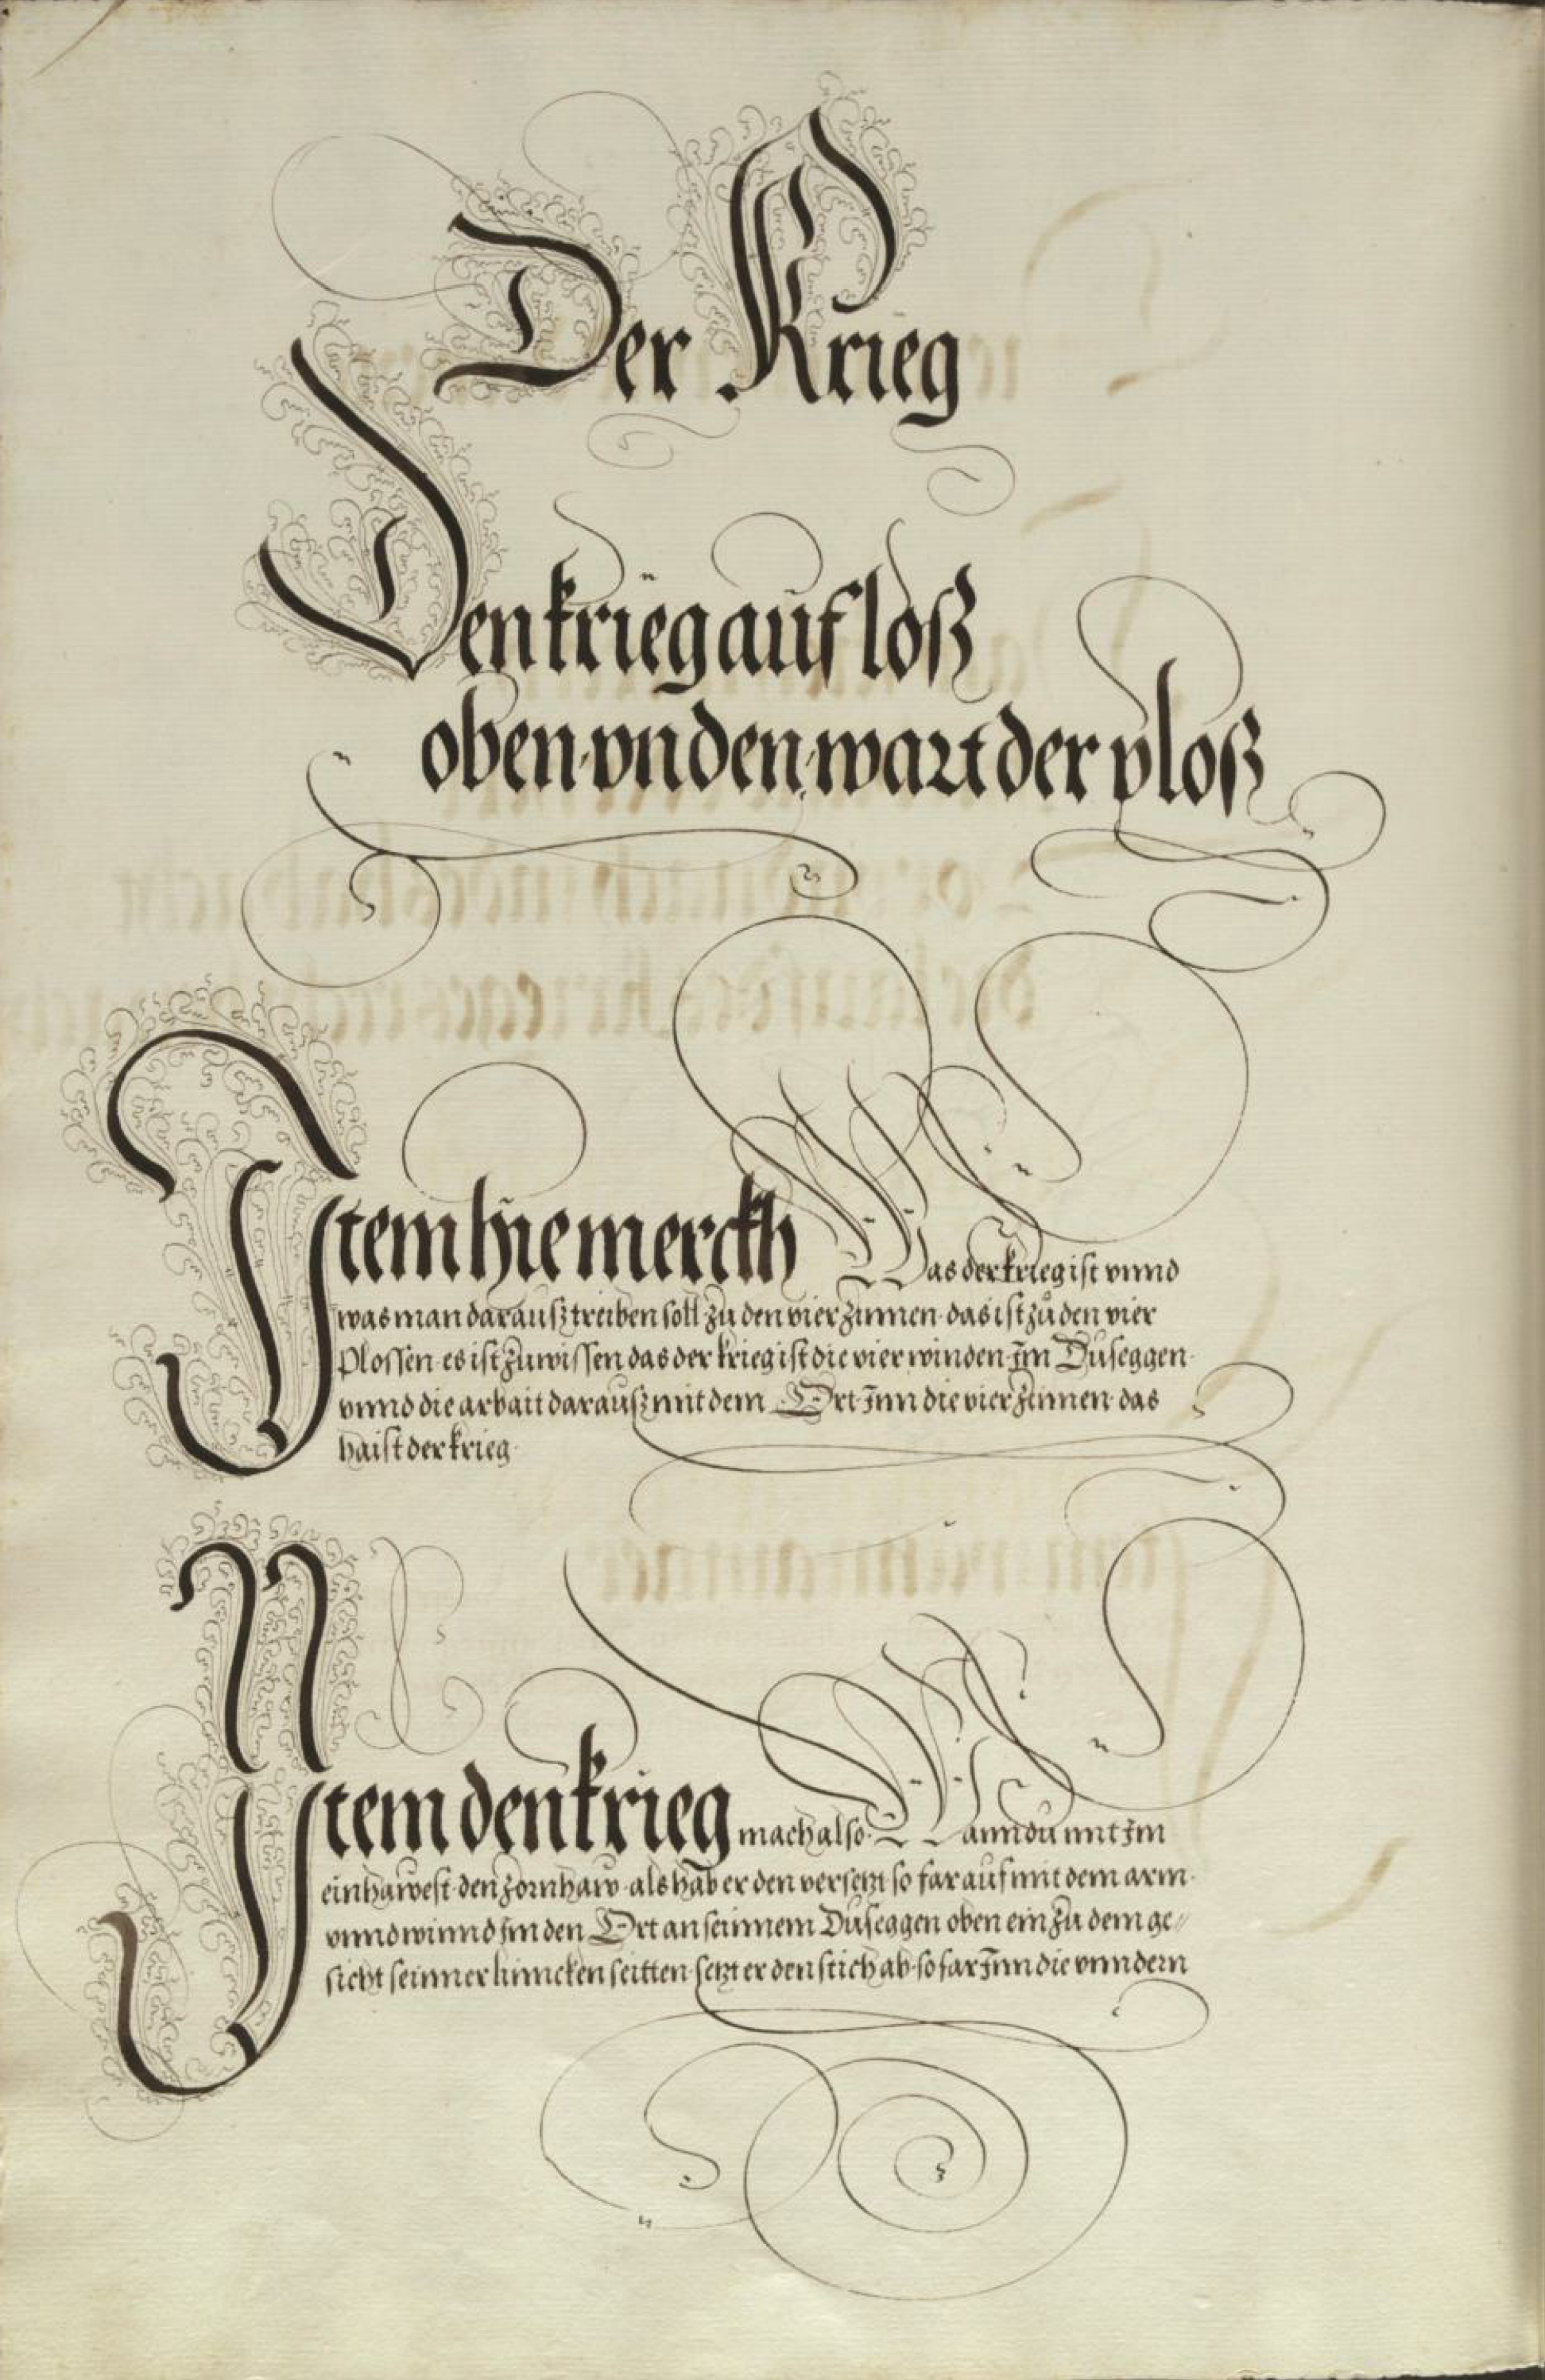 Der Krieg
Den krieg auf loß
oben vnden wart der ploß
Item hie merckh Was der krieg ist vnnd
was man darauß treiben soll zu den vier zinnen das ist zů den vier
Plossen es ist zu wissen das der krieg ist die vier winden Im Duseggen
vnnd die arbait darauß mit dem Ort Inn die vier zinnen das
haist der krieg
Item den krieg mach also Wann du mit Im
einhawest den zornhaw als hab er den versetzt so far auf mit dem arm
vnnd winnd Im den Ort an seinnem Duseggen oben ein zu dem ge//
sicht seinner linncken seitten setzt er den stich ab so far Inn die vnndern